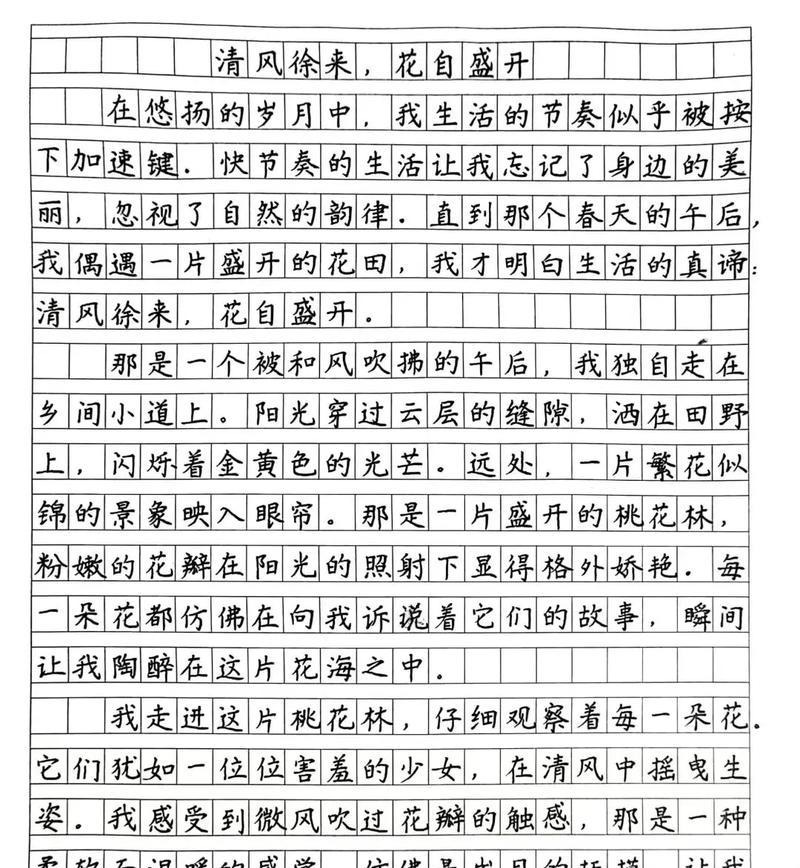 清风徐来，花自盛开
在悠扬的岁月中，我生活的节奏似乎被按
下加速键．快节奏的生活让我忘记了身边的美
丽，忽视了自然的韵律．直到那个春天的午后，
我偶遇一片盛开的花田，我才明白生活的真谛：
清风徐来，花自盛开。
那是一个被和风吹拂的午后，我独自走在
乡间小道上。阳光穿过云层的缝隙，洒在田野
上，闪烁着金黄色的光芒。远处，一片繁花似
锦的景象映入眼帘。那是一片盛开的桃花林，
粉嫩的花瓣在阳光的照射下显得格外娇艳．每
一朵花都仿佛在向我诉说着它们的故事，瞬间
让我陶醉在这片花海之中．
我走进这片桃花林，仔细观察着每一朵花．
它们犹如一位位害羞的少女，在清风中摇曳生
姿。我感受到微风吹过花瓣的触感，那是一种